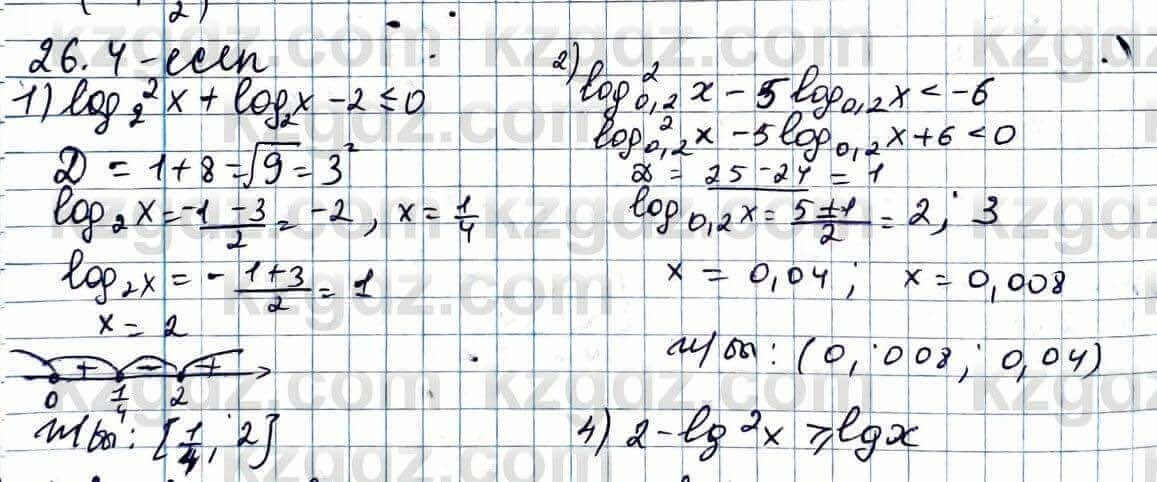 26.4-есеп
1) log₂²x + log₂x - 2 ≤ 0
D = 1 + 8 = √9 = 3²
log₂x = -1 - 3 / 2 = -2, x = 1/4
log₂x = - 1+3 / 2 = 1
x = 2
+ - +
0 1/4 2
Ж/бы: [1/4; 2]
2) log²₀,₂x - 5log₀,₂x < -6
log²₀,₂x - 5log₀,₂x + 6 < 0
D = 25 - 24 = 1
log₀,₂x = 5±1 / 2 = 2; 3
x = 0,04; x = 0,008
Ж/бы: (0,008; 0,04)
4) 2 - lg²x ≥ lgx
kzgdz.com